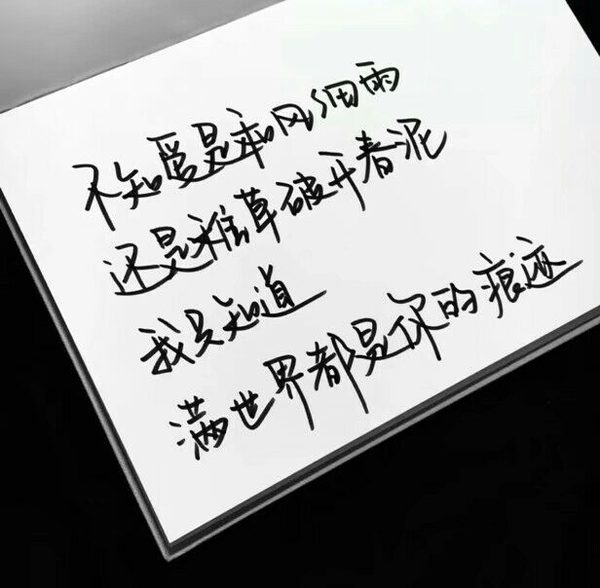 不知爱是和风细雨
还是稚草破开春泥
我只知道
满世界都是你的痕迹